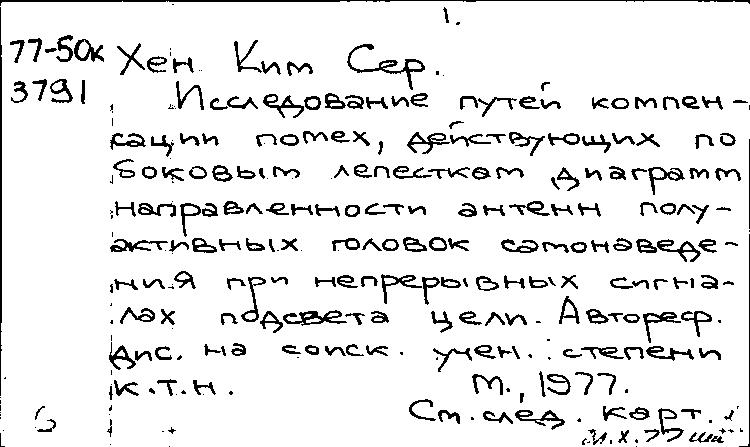 1.
77-50к Хен Ким Сер.
3791 Исследование путей компен-
сации помех, действующих по
боковым лепесткам диаграмм
направленности антенн полу-
активных головок самонаведе-
ния при непрерывных сигна-
лах подсвета цели. Автореф.
дис. на соиск. учен. степени
к.т.н. М., 1977.
См. след. карт.
б